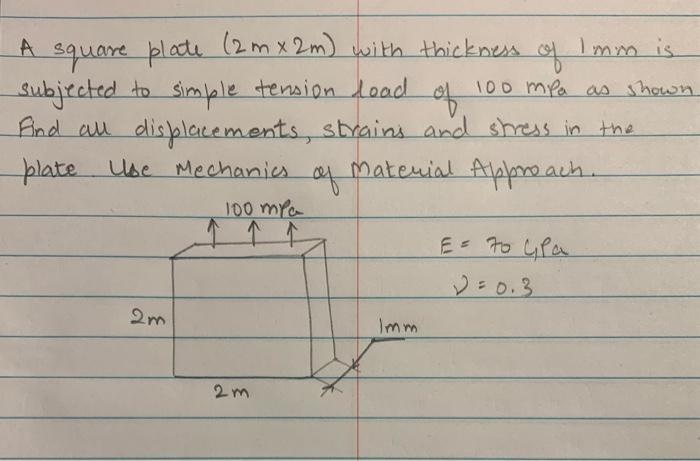 A square plate (2m x 2m) with thickness of 1mm is
subjected to simple tension load of 100 mPa as shown.
Find all displacements, strains and stress in the
plate. Use Mechanics of Material Approach.
100 mPa
E = 70 GPa
ν = 0.3
2m
1mm
2m